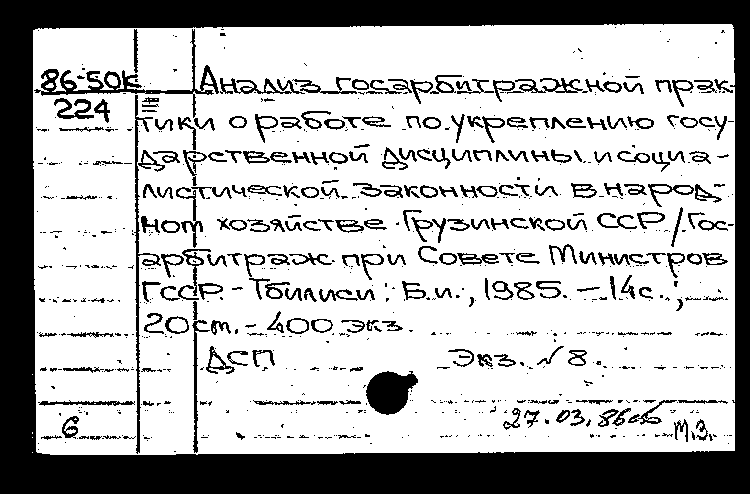 86-50к Анализ госарбитражной прак-
224 тики о работе по укреплению госу-
дарственной дисциплины и социа-
листической законности в народ-
ном хозяйстве Грузинской ССР / Гос-
арбитраж при Совете Министров
ГССР. - Тбилиси : Б.и., 1985. - 14с.;
20 см. - 400 экз.
ДСП Экз. № 8.
6 27.03.86 М.З.